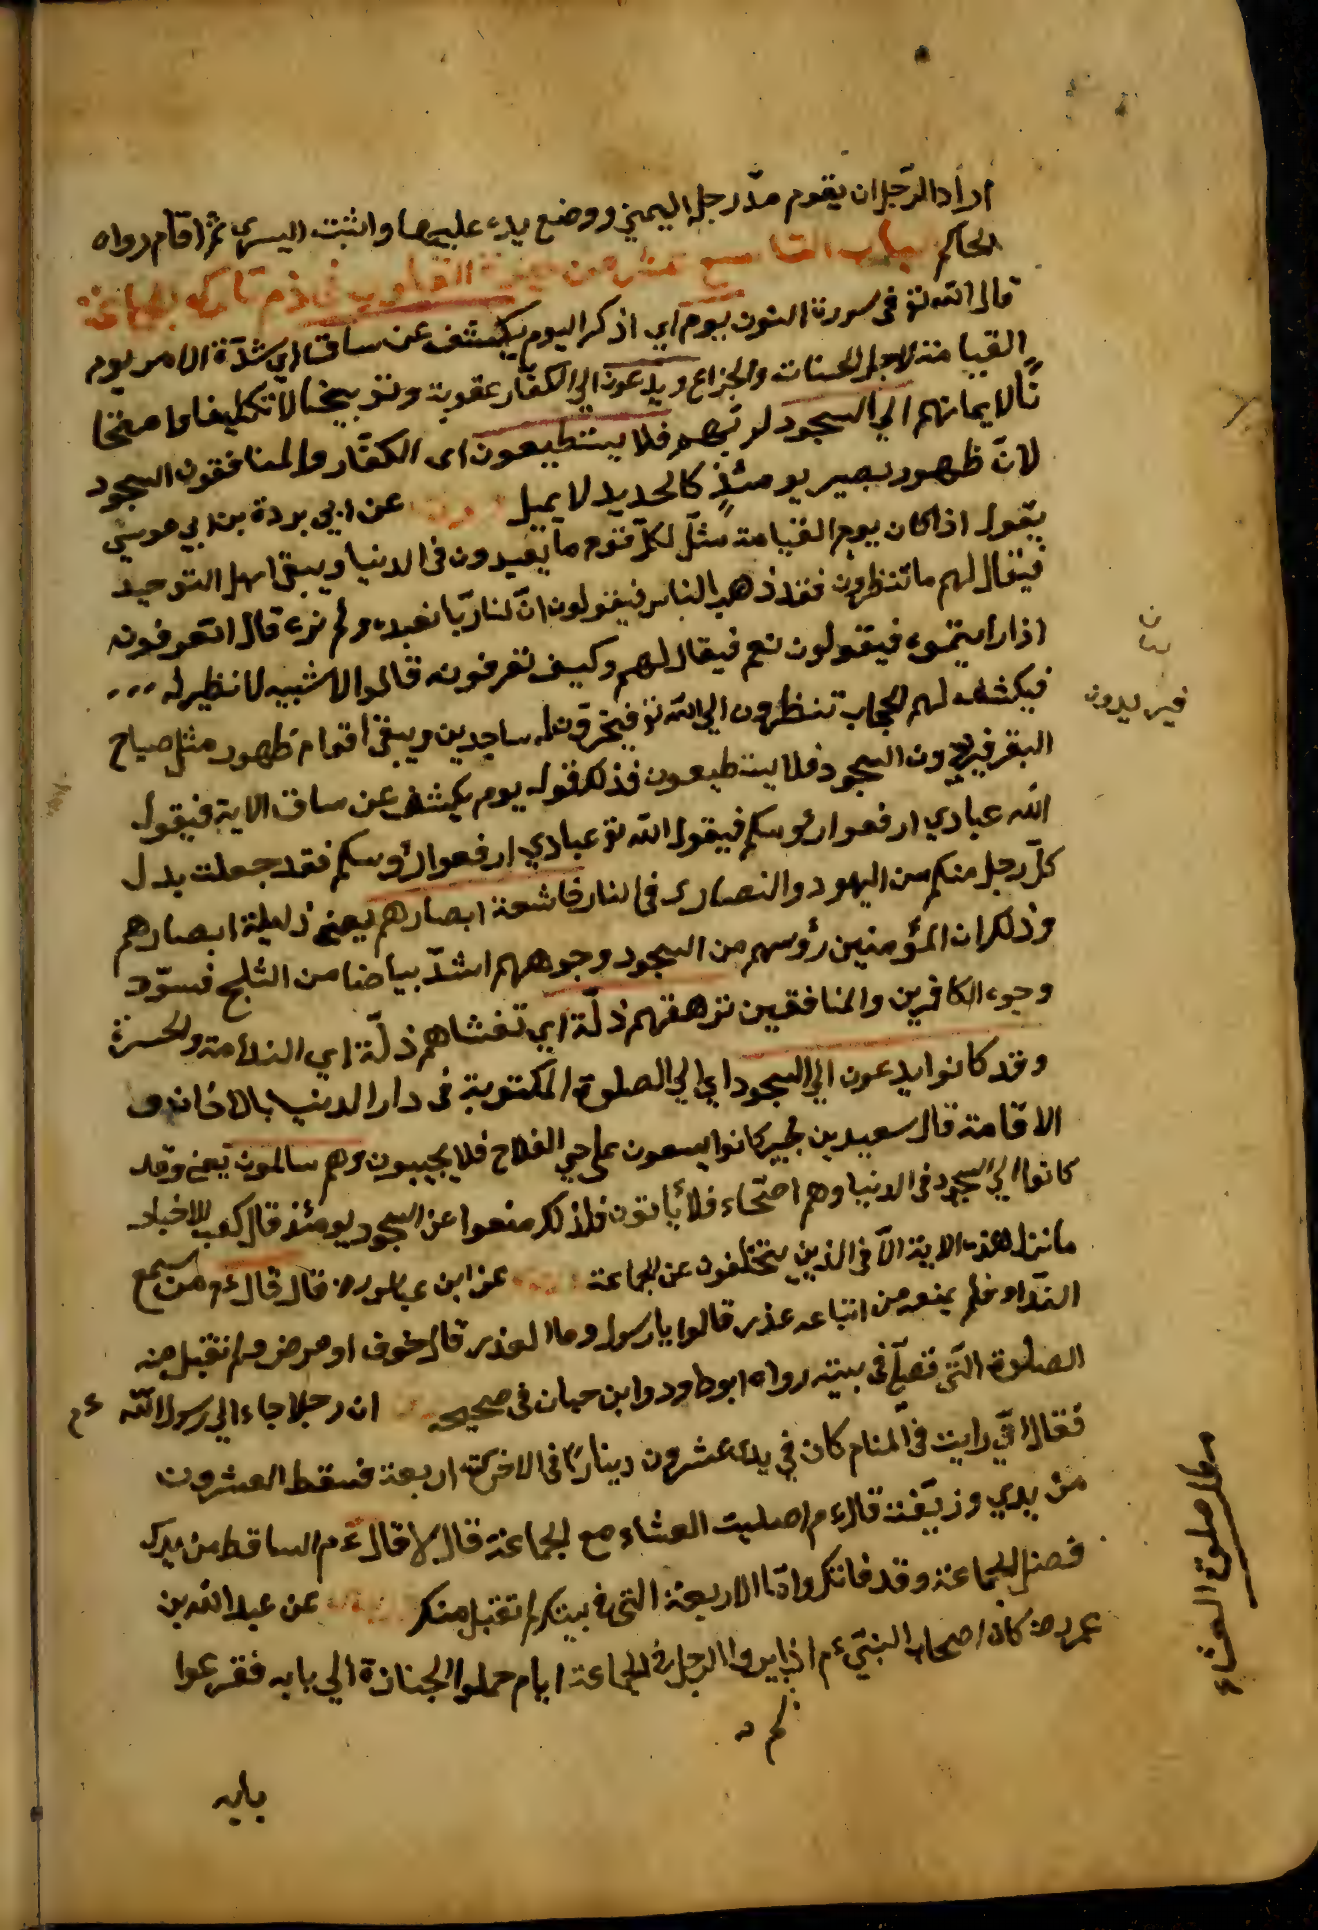 اراد الرّجل ان يقوم مدّ رجل اليمني ووضع يده عليها واثبت اليسرى ثم اقام رواه
الحاكم باب التاسع عشر من القلوب في ذم تارك الجماعة
قال الله تع في سورة النون يوم اي اذكر اليوم يكشف عن ساق اي شدّة الامر يوم
القيامة لاجل الحسنات والجزاء ويدعون اي الكفّار عقوبة وتوبيخا لا تكليفا وامتحا
نًا لايمانهم الي السجود لربّهم فلا يستطيعون اى الكفّار والمنافقون السجود
لانّ ظهور يصير يومئذٍ كالحديد لا يميل عن ابي بردة بن ابي موسى
يقول اذا كان يوم القيامة مثّل لكلّ قوم ما يعبدون في الدنيا ويبقى اهل التوحيد
فيقال لهم ما تنظرون فقد ذهب الناس فيقولون انّ لنا ربّا نعبده ولم نره قال اتعرفونه
اذا رايتموه فيقولون نعم فيقال لهم وكيف تعرفونه قالوا لا شبيه له لا نظير له
فيكشف لهم الحجاب تنظرون الي الله تع فيخرّون له ساجدين ويبقى اقوام ظهور مثل صياح
البقر فيريدون السجود فلا يستطيعون فذلك قوله يوم يكشف عن ساق الاية فيقول
الله عبادي ارفعوا رؤسكم فيقول الله تع عبادي ارفعوا رؤوسكم فقد جعلت بدل
كلّ رجل منكم من اليهود والنصارى في النار خاشعة ابصارهم يعني ذليلة ابصارهم
وذلك ان المؤمنين رؤسهم من السجود وجوههم اشدّ بياضا من الثلج فسوّد
وجوه الكافرين والمنافقين ترهقهم ذلّة اي تغشاهم ذلّة اي الندامة والحسرة
وقد كانوا يدعون الي السجود اي الي الصلوة المكتوبة في دار الدنيا بالاذان و
الاقامة قال سعيد بن جبير كانوا يسعون على حي الفلاح فلا يجيبون وهم سالمون يعني وقد
كانوا الي السجود في الدنيا وهم اصحّاء فلا يأتون فلذلك منعوا عن السجود يومئذ قال كعب الاخبار
ما نزل هذه الاية الّا في الذين يتخلفون عن الجماعة عن ابن عباس رض قال قال ءم من سمع
النداء فلم يمنعه من اتباعه عذر قالوا يا رسول وما العذر قال خوف او مرض ولم تقبل منه
الصلوة الّتي تصلّى في بيته رواه ابو داود وابن حبان في صحيحه ان رجلا جاء الي رسول الله ءم
فقال انّي رايت في المنام كان في يدي عشرون دينارًا في الاخرى اربعة فسقط العشرون
من يدي وزيّفته قال ءم اصليت العشاء مع الجماعة قال لا قال ءم الساقط من يدك
فضل الجماعة وقد فاتك وامّا الاربعة التي في بيتك لم تقبل منك عن عبد الله بن
عمر رض كان اصحاب النبيّ ءم اذا لم يروا الرجل في الجماعة ايام حملوا الجنازة الي بابه فقرعوا
بابه
فيريدون
صلوة العشاء